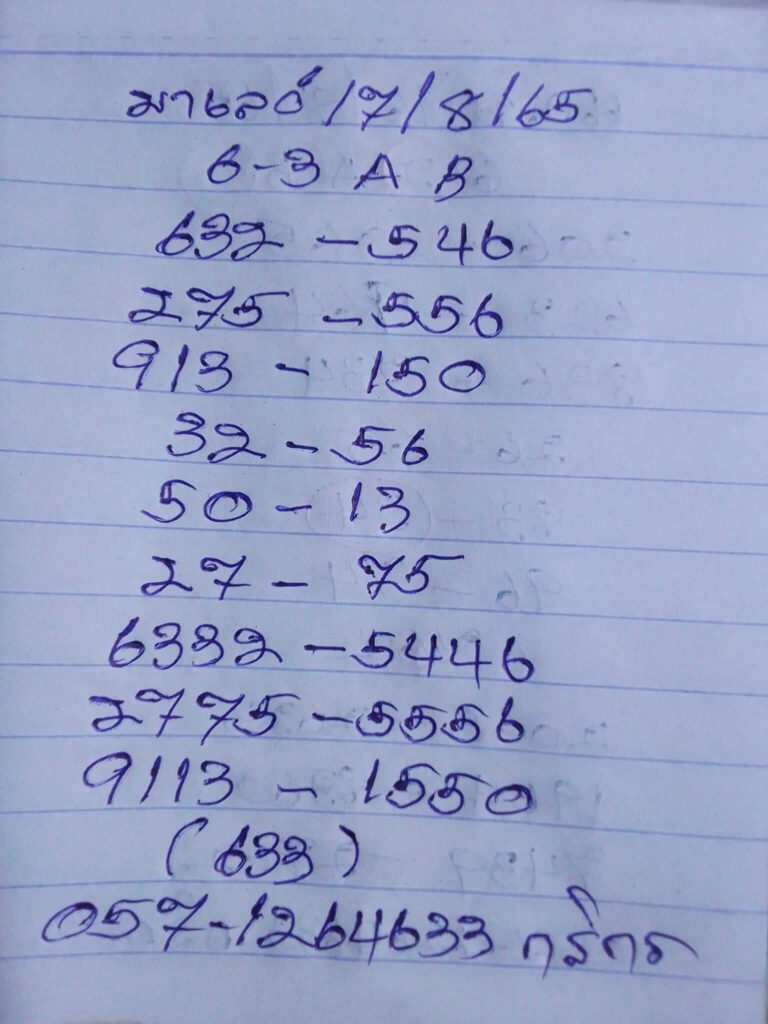 มาเลย์/7/8/65
6-3 A B
632 - 546
275 - 556
913 - 150
32 - 56
50 - 13
27 - 75
6332 - 5446
2775 - 5556
9113 - 1550
(633)
057-1264633 กสิกร